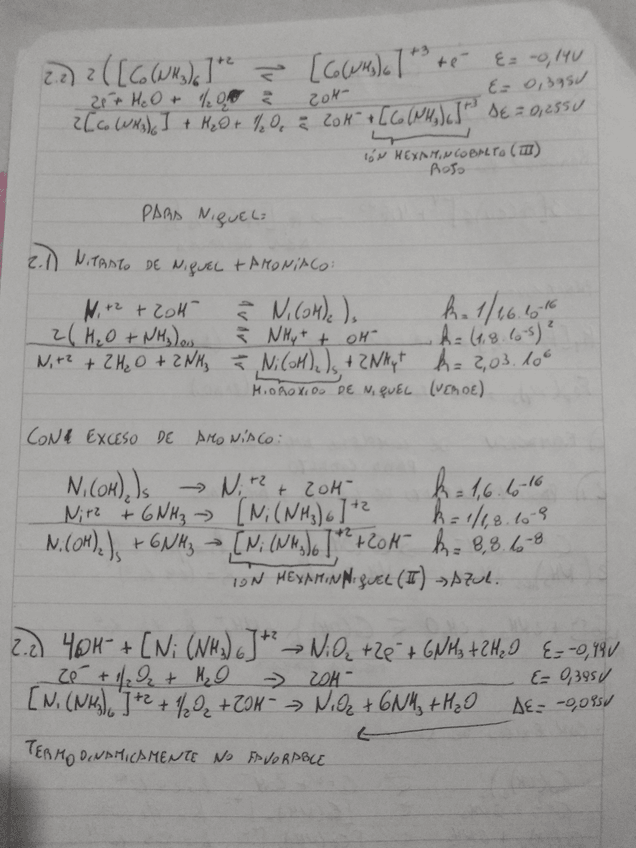 2.2) 2([Co(NH3)6]+2 ⇌ [Co(NH3)6]+3 + e- ε = -0,14V
2e- + H2O + 1/2 O2 ⇌ 2OH- ε = 0,395V
2[Co(NH3)6] + H2O + 1/2 O2 ⇌ 2OH- + [Co(NH3)6]+3 Δε = 0,255V
IÓN HEXAMINCOBALTO (III)
ROJO
PARA NIQUEL:
2.1) NITRATO DE NIQUEL + AMONÍACO:
Ni+2 + 2OH- ⇌ Ni(OH)2)s k = 1/1,6.10-16
2(H2O + NH3)(ac) ⇌ NH4+ + OH- k = (1,8.10-5)2
Ni+2 + 2H2O + 2NH3 ⇌ Ni(OH)2)s + 2NH4+ k = 2,03.106
HIDRÓXIDO DE NIQUEL (VERDE)
CON EXCESO DE AMONÍACO:
Ni(OH)2)s → Ni+2 + 2OH- k = 1,6.10-16
Ni+2 + 6NH3 → [Ni(NH3)6]+2 k = 1/1,8.10-9
Ni(OH)2)s + 6NH3 → [Ni(NH3)6]+2 + 2OH- k = 8,8.10-8
IÓN HEXAMINNIQUEL (II) → AZUL.
2.2) 4OH- + [Ni(NH3)6]+2 → NiO2 + 2e- + 6NH3 + 2H2O ε = -0,49V
2e- + 1/2 O2 + H2O → 2OH- ε = 0,395V
[Ni(NH3)6]+2 + 1/2 O2 + 2OH- → NiO2 + 6NH3 + H2O Δε = -0,095V
TERMODINAMICAMENTE NO FAVORABLE